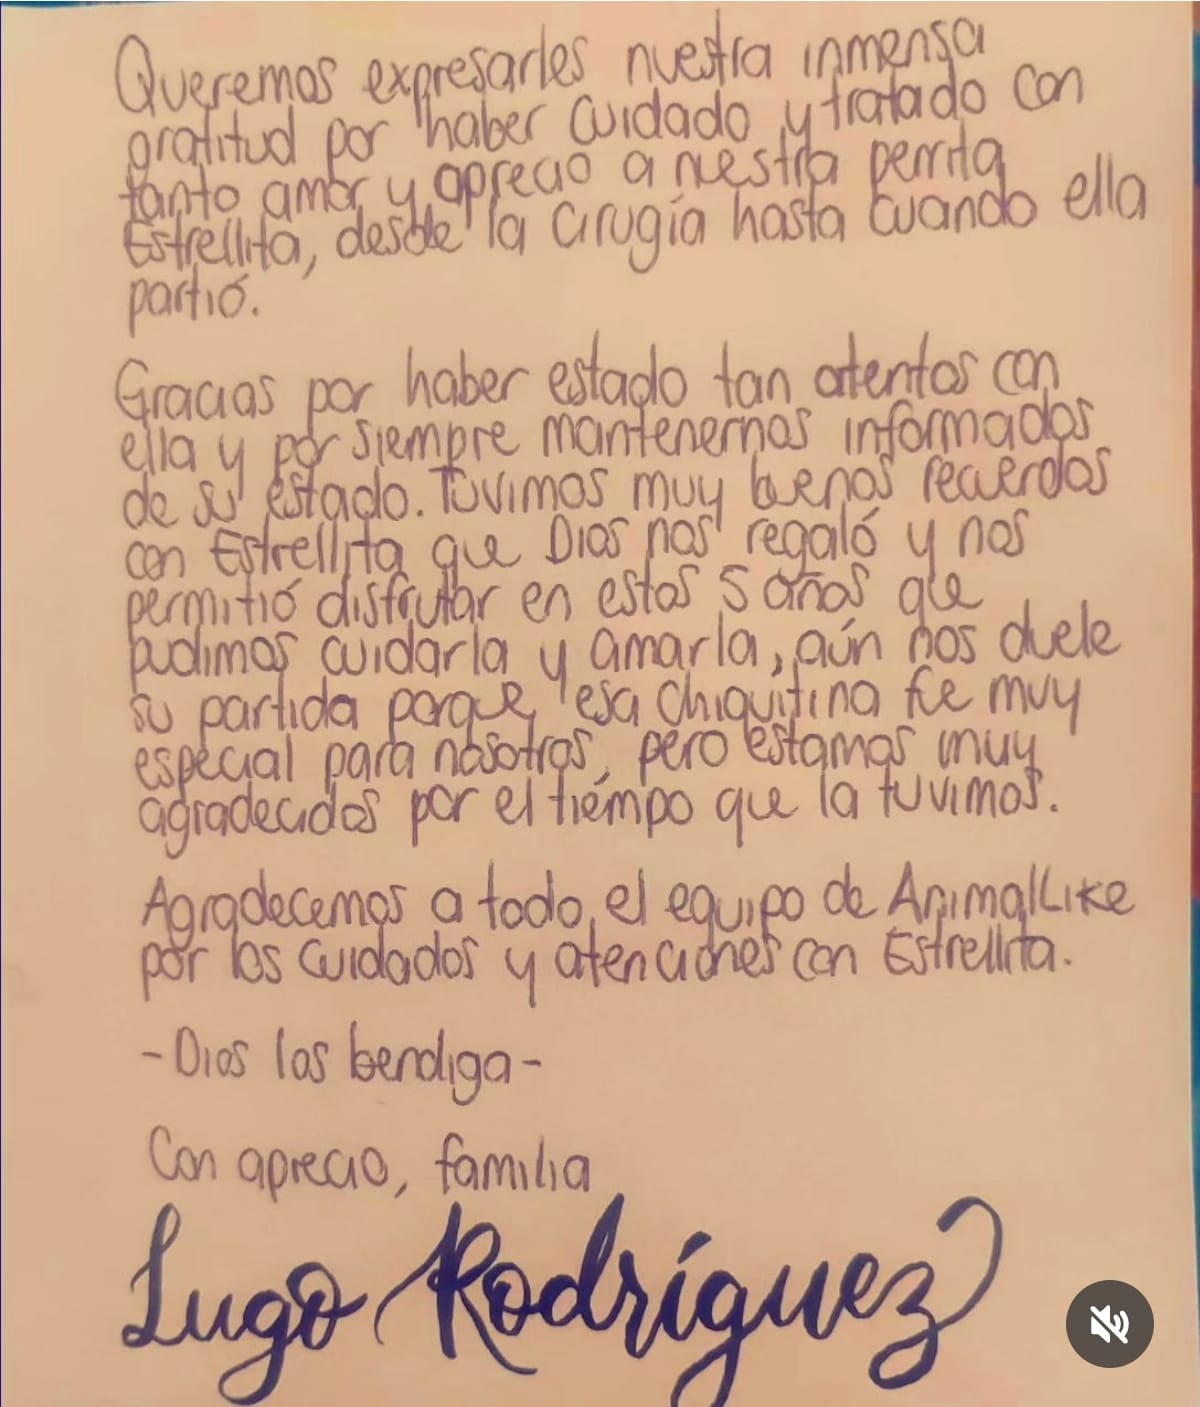 Queremos expresarles nuestra inmensa
gratitud por haber cuidado y tratado con
tanto amor y aprecio a nuestra perrita
Estrellita, desde la cirugía hasta cuando ella
partió.
Gracias por haber estado tan atentos con
ella y por siempre mantenernos informados
de su estado. Tuvimos muy buenos recuerdos
con Estrellita que Dios nos regaló y nos
permitió disfrutar en estos 5 años que
pudimos cuidarla y amarla, aún nos duele
su partida porque esa chiquitina fue muy
especial para nosotros, pero estamos muy
agradecidos por el tiempo que la tuvimos.
Agradecemos a todo el equipo de AnimalLike
por los cuidados y atenciones con Estrellita.
-Dios los bendiga-
Con aprecio, familia
Lugo Rodríguez